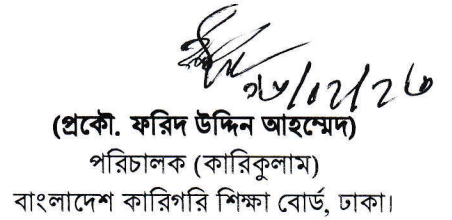 (প্রকৌ. ফরিদ উদ্দিন আহম্মেদ)
পরিচালক (কারিকুলাম)
বাংলাদেশ কারিগরি শিক্ষা বোর্ড, ঢাকা।